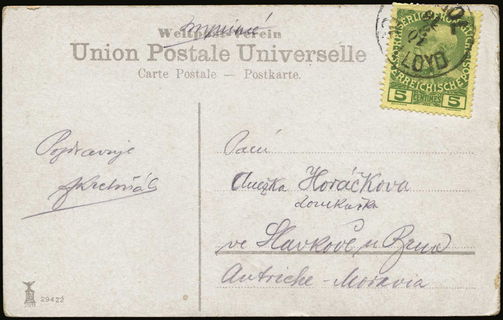 Weltpostverein
Union Postale Universelle
Carte Postale — Postkarte.
LLOYD
5 CENTIMES 5
Pozdravuje
Paní
Anežka Horáčkova
ve Slavkově u Brna
Autriche-Moravia
29422